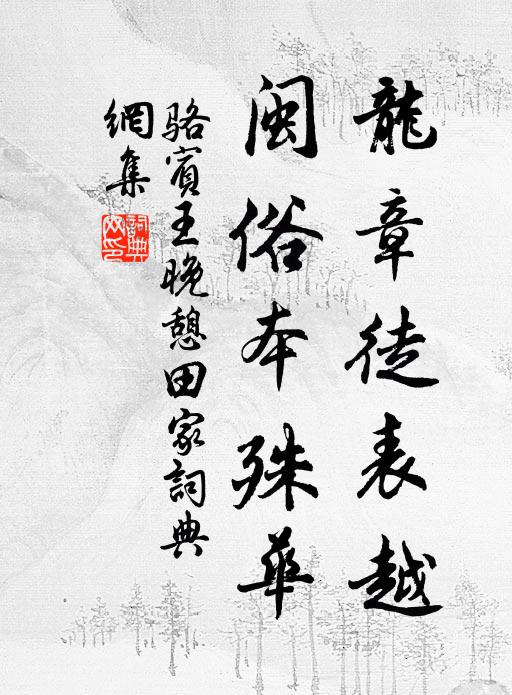 龍章徒表越
閩俗本殊華
駱賓王晚憩田家詞典
網集
詞典
网印